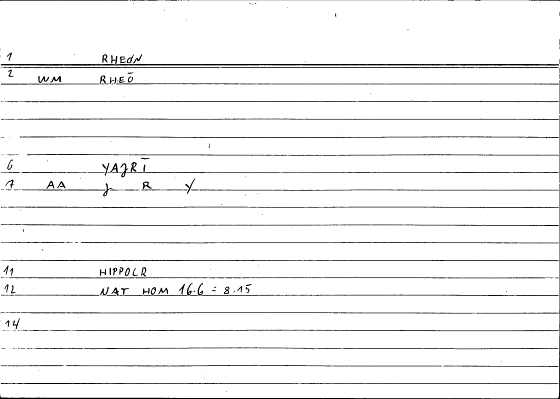 1 RHEŌN
2 WM RHEŌ
6 YAJRĪ
7 AA J R Y
11 HIPPOCR
12 NAT HOM 16.6 = 8.15
14